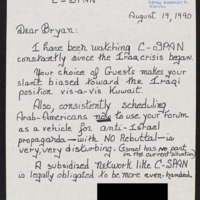 C-SPAN
August 19, 1990
Dear Bryan:
I have been watching C-SPAN
constantly since the Iraq crisis began.
Your choice of Guests makes your
slant biased toward the Iraqi
position vis-a-vis Kuwait.
Also, consistently scheduling
Arab-Americans now to use your Forum
as a vehicle for anti-Israel
propaganda—with NO Rebuttal—is
very, very disturbing. (Israel has no part
in the current situation)
A subsidized Network like C-SPAN
is legally obligated to be more even-handed.